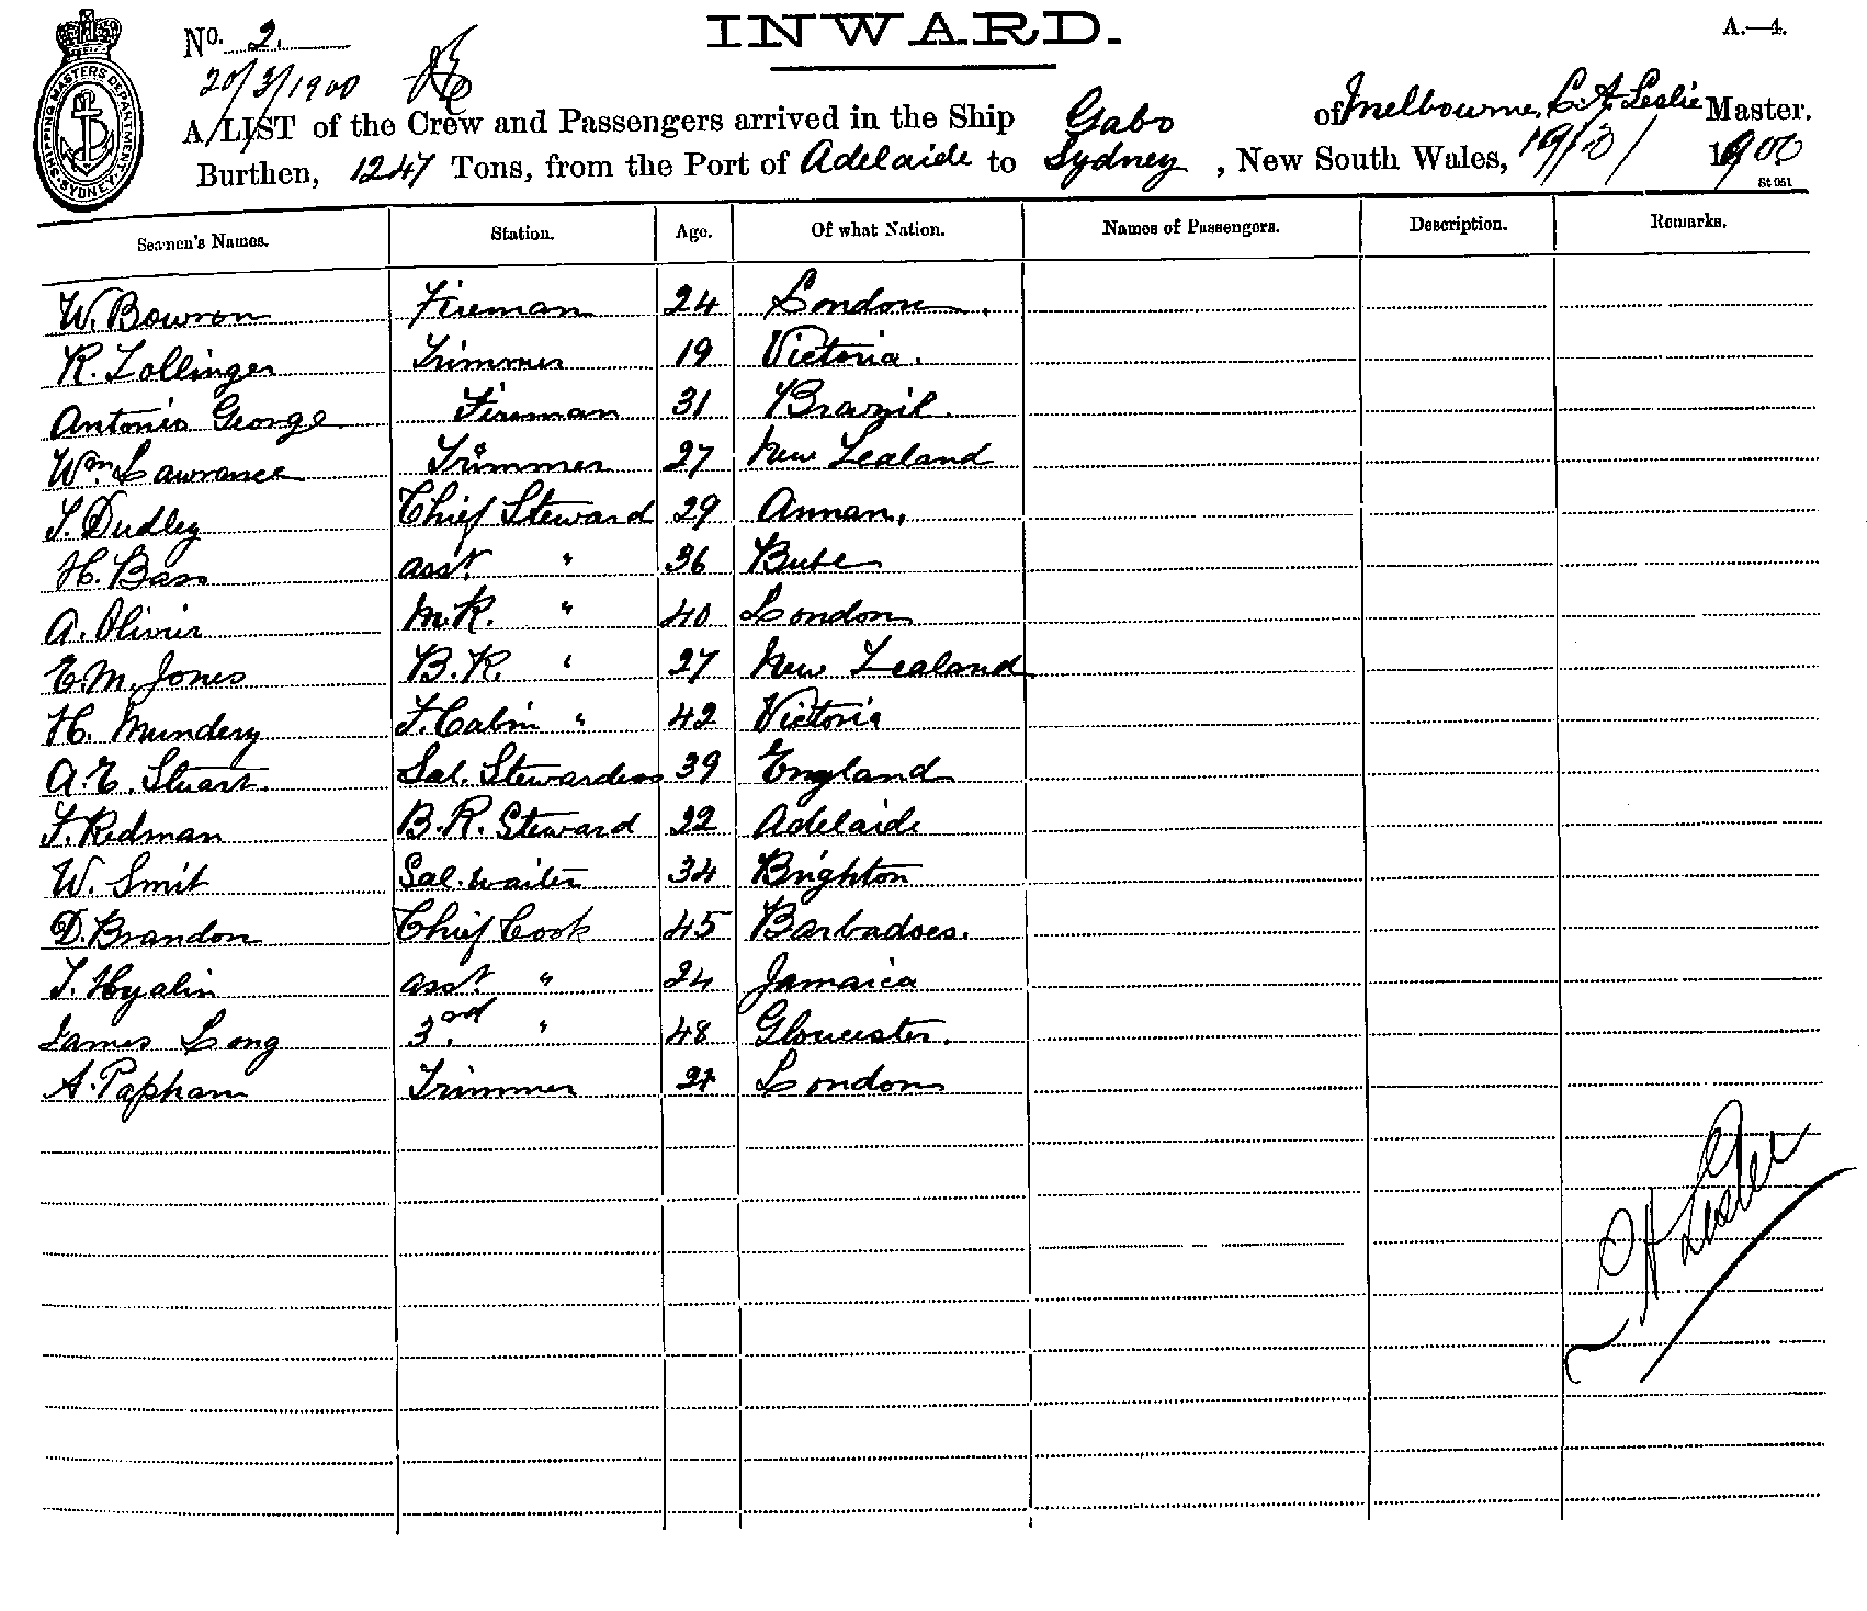 INWARD.
A.—4.
No. 2.
20/3/1900
SHIPPING MASTERS DEPARTMENT SYDNEY
A LIST of the Crew and Passengers arrived in the Ship Gabo of Melbourne, C A Leslie Master.
Burthen, 1247 Tons, from the Port of Adelaide to Sydney, New South Wales, 19/3/ 1900
St 051
Seamen's Names. Station. Age. Of what Nation. Names of Passengers. Description. Remarks.
W. Bowron Fireman 24 London.
R. Zollinger Trimmer 19 Victoria.
Antonio George Fireman 31 Brazil.
Wm. Lawrance Trimmer 27 New Zealand
T. Dudley Chief Steward 29 Annan,
H. Bass asst. " 36 Bute
A. Olivier M.R. " 40 London
E.M. Jones B.R. " 27 New Zealand
H. Mundery F. Cabin " 42 Victoria
A.E. Stuart. Sal. Stewardess 39 England
F. Redman B.R. Steward 22 Adelaide
W. Smit Sal. waiter 34 Brighton
D. Brandon Chief Cook 45 Barbadoes.
T. Hyalin asst. " 24 Jamaica
James Long 3.rd " 48 Gloucester.
A. Papham Trimmer London